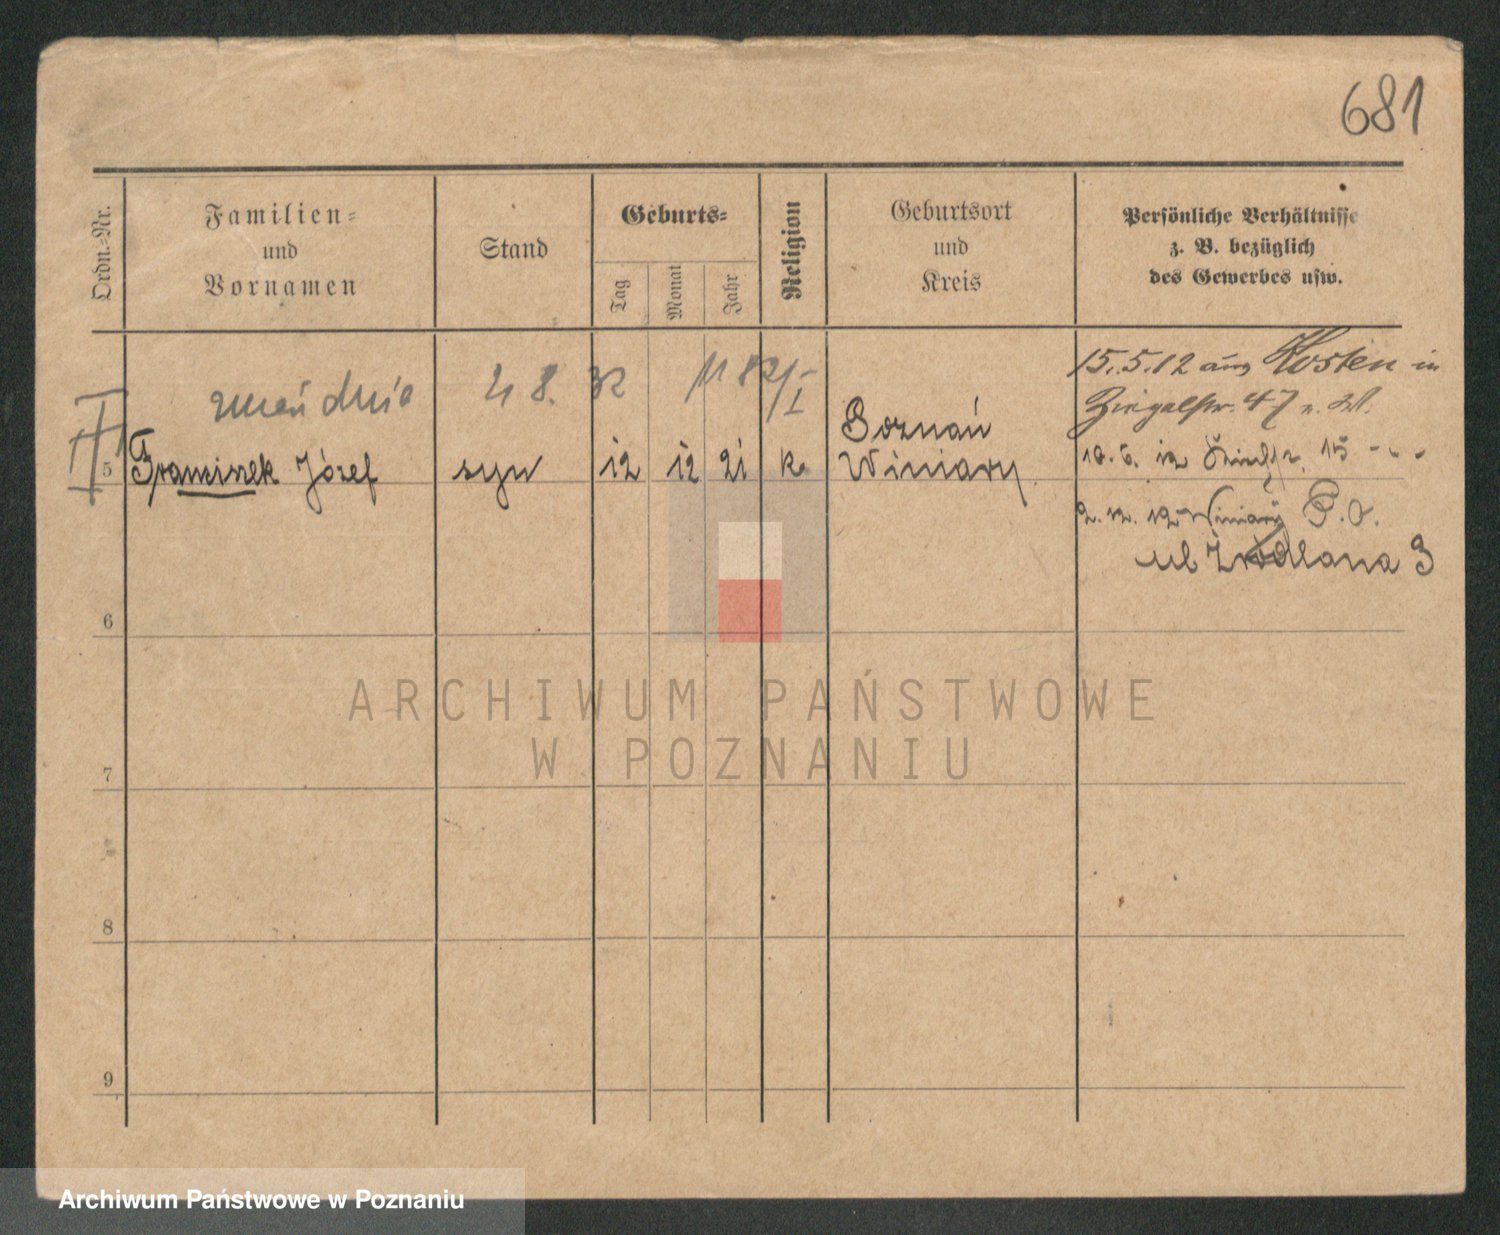 681
Ordn.-Nr.
Familien-
und
Vornamen
Stand
Geburts-
Tag
Monat
Jahr
Religion
Geburtsort
und
Kreis
Persönliche Verhältnisse
z. B. bezüglich
des Gewerbes usw.
zmarł dnia 4 8. 32
15.5.12 aus Kosten in
Ziegelstr. 47 b. W.
II
5 Franciszek Józef syn 12 12 21 k. Poznań
Winiary
2. 12. 12 Winiary P.O.
ul Źródlana 3
6
7
8
9
ARCHIWUM PAŃSTWOWE
W POZNANIU
Archiwum Państwowe w Poznaniu